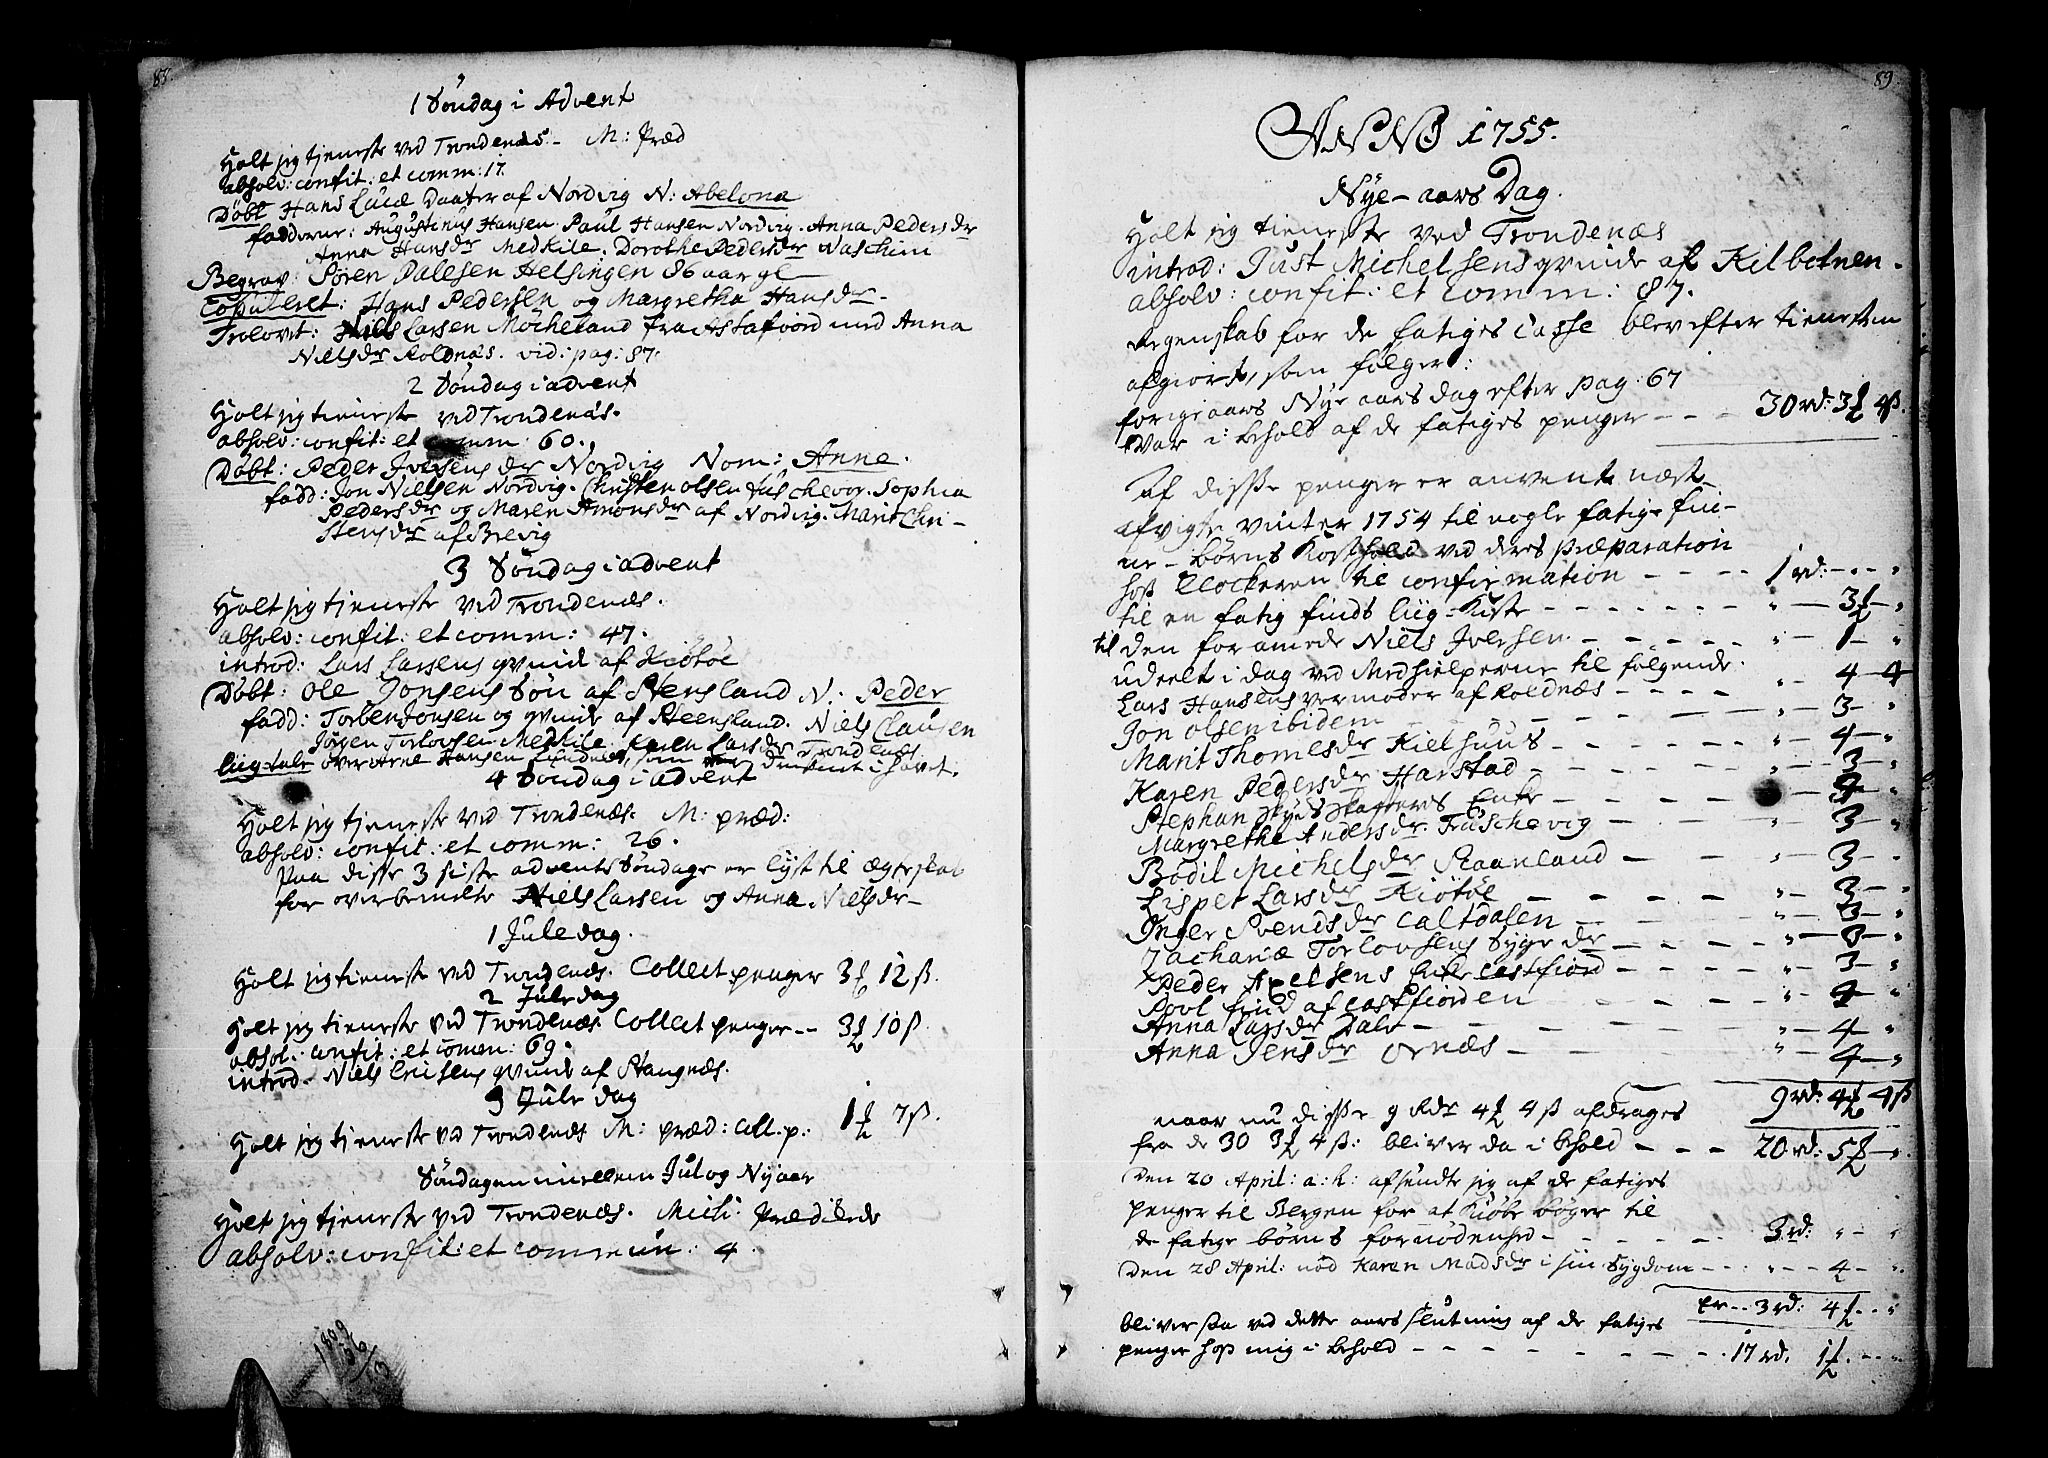 88.
1 Søndag i Advent
Holt jeg tjeneste ved Trondenæs - M: Præd
absolv: confit: et comm: 17.
Døbt Hans Daater af Nordvig N: Abelona
fadderne: Augustinus Hansen. Paul Hansen Nordvig. Anna Pedersdr
Anna Hansdr Medkile. Dorothe Pedersdr
Begrav: Søren Helsingen 86 aar gl
Copuleret: Hans Pedersen og Margretha Hansdr -
Trolovet: Niels Larsen fra Astafiord med Anna
Nielsdr Roldnæs. vid: pag: 87.
2 Søndag i advent
Holt jeg tieneste ved Trondenæs.
absolv: confit: et comm: 60.
Døbt: Peder Iversens dr Nordvig Nom: Anne.
fadd: Jon Nielsen Nordvig. Christen Olsen. Sophia
Pedersdr og Maren Amonsdr af Nordvig. Marit Chri-
stensdr af Brevig
3 Søndag i advent
Holt jeg tjeneste ved Trondenæs.
absolv: confit: et comm: 47.
introd: Lars Larsens qvinde af Kiøtøe
Døbt: Ole Jonsens Søn af Stensland N: Peder
fadd: Torben Jonsen og qvinde af Steensland. Niels Clausen
Jørgen Torlovsen Medkile. Karen Larsdr Trondenæs.
Liig-tale over Arne Hansen som i havet.
4 Søndag i advent
Holt jeg tjeneste ved Trondenæs. M: præd:
absolv: confit: et comm: 26.
Paa disse 3 siste advents Søndage er lyst til ægteskab
for overbemelte Niels Larsen og Anna Nielsdr -
1 Juledag.
Holt jeg tieneste ved Trondenæs. Collect penger 3 12 ß.
2 Juledag
Holt jeg tieneste ved Trondenæs Collect penger -- 3 10 ß.
absol: confit: et comm: 69.
introd. Niels Erichsens qvinde af Stangnæs.
3 Jule dag
Holt jeg tjeneste ved Trondenæs M: præd: Coll: p: 1 7 ß.
Søndagen imellem Jul og Nyaar
Holt jeg tjeneste ved Trondenæs. Mich: Prædikede
absolv: confit: et commun: 4.
89
ANNO 1755.
Nye-aars Dag.
Holt jeg tieneste ved Trondenæs
introd: Just Michelsens qvinde af Kilbotnen.
absolv: confit: et comm: 87.
Regenskab for de fatiges Casse blev efter tienesten
afgiort, som følger:
forrige aars Nye aars dag efter pag: 67
var i behold af de fatiges penger - - - 30 rd: 3 4 ß.
Af disse penger er anvent næst
afvigte vinter 1754 til nogle fatige fin-
ne-børns Kosthold ved deres præparation
hos Clockeren til confirmation - - - - 1 rd: - - -
til en fatig finds liig-Kiste - - - - - - 3 -
til den forarmede Niels Iversen - - - - - 1 -
udeelt i dag ved Medhielperne til følgende:
Lars Hansens vermoder af Roldnæs - - - - 4 - 4
Jon Olsen ibidem - - - - 3 -
Marit Thomesdr Kielhuus - - - - 4 -
Karen Pedersdr Harstad - - - - 3 -
Stephan Enke - - - -
Margrethe Andersdr. - - - 3 -
Bodil Michelsdr Raanland - - - - 3 -
Lispet Larsdr Kiøtøe - - - - 3 -
Inger Svendsdr - - - - 3 -
Zachariæ Torlovsens dr - - - - 3 -
Peder Axelsens Enke - - - - 3 -
Povl find af - - - - 4 -
Anna Larsdr Dale - - - - 4 -
Anna Jensdr Ornæs - - - - 4 -
9 rd: 4 4 ß
naar nu disse 9 Rdr 4 4 ß afdrages
fra de 30 3 4 ß: bliver da i behold - - - 20 rd: 5 -
Den 20 April: a: h: afsendte jeg af de fatiges
penger til Bergen for at Kiøbe bøger til
de fatige børns fornødenhed - - - - 3 rd: -
Den 28 April: nød Karen Madsdr i sin Sygdom - - - - 4 -
er - - 3 rd: 4
bliver saa ved dette aars slutning af de fatiges
penger hos mig i behold - - - - - - - 17 rd. 1